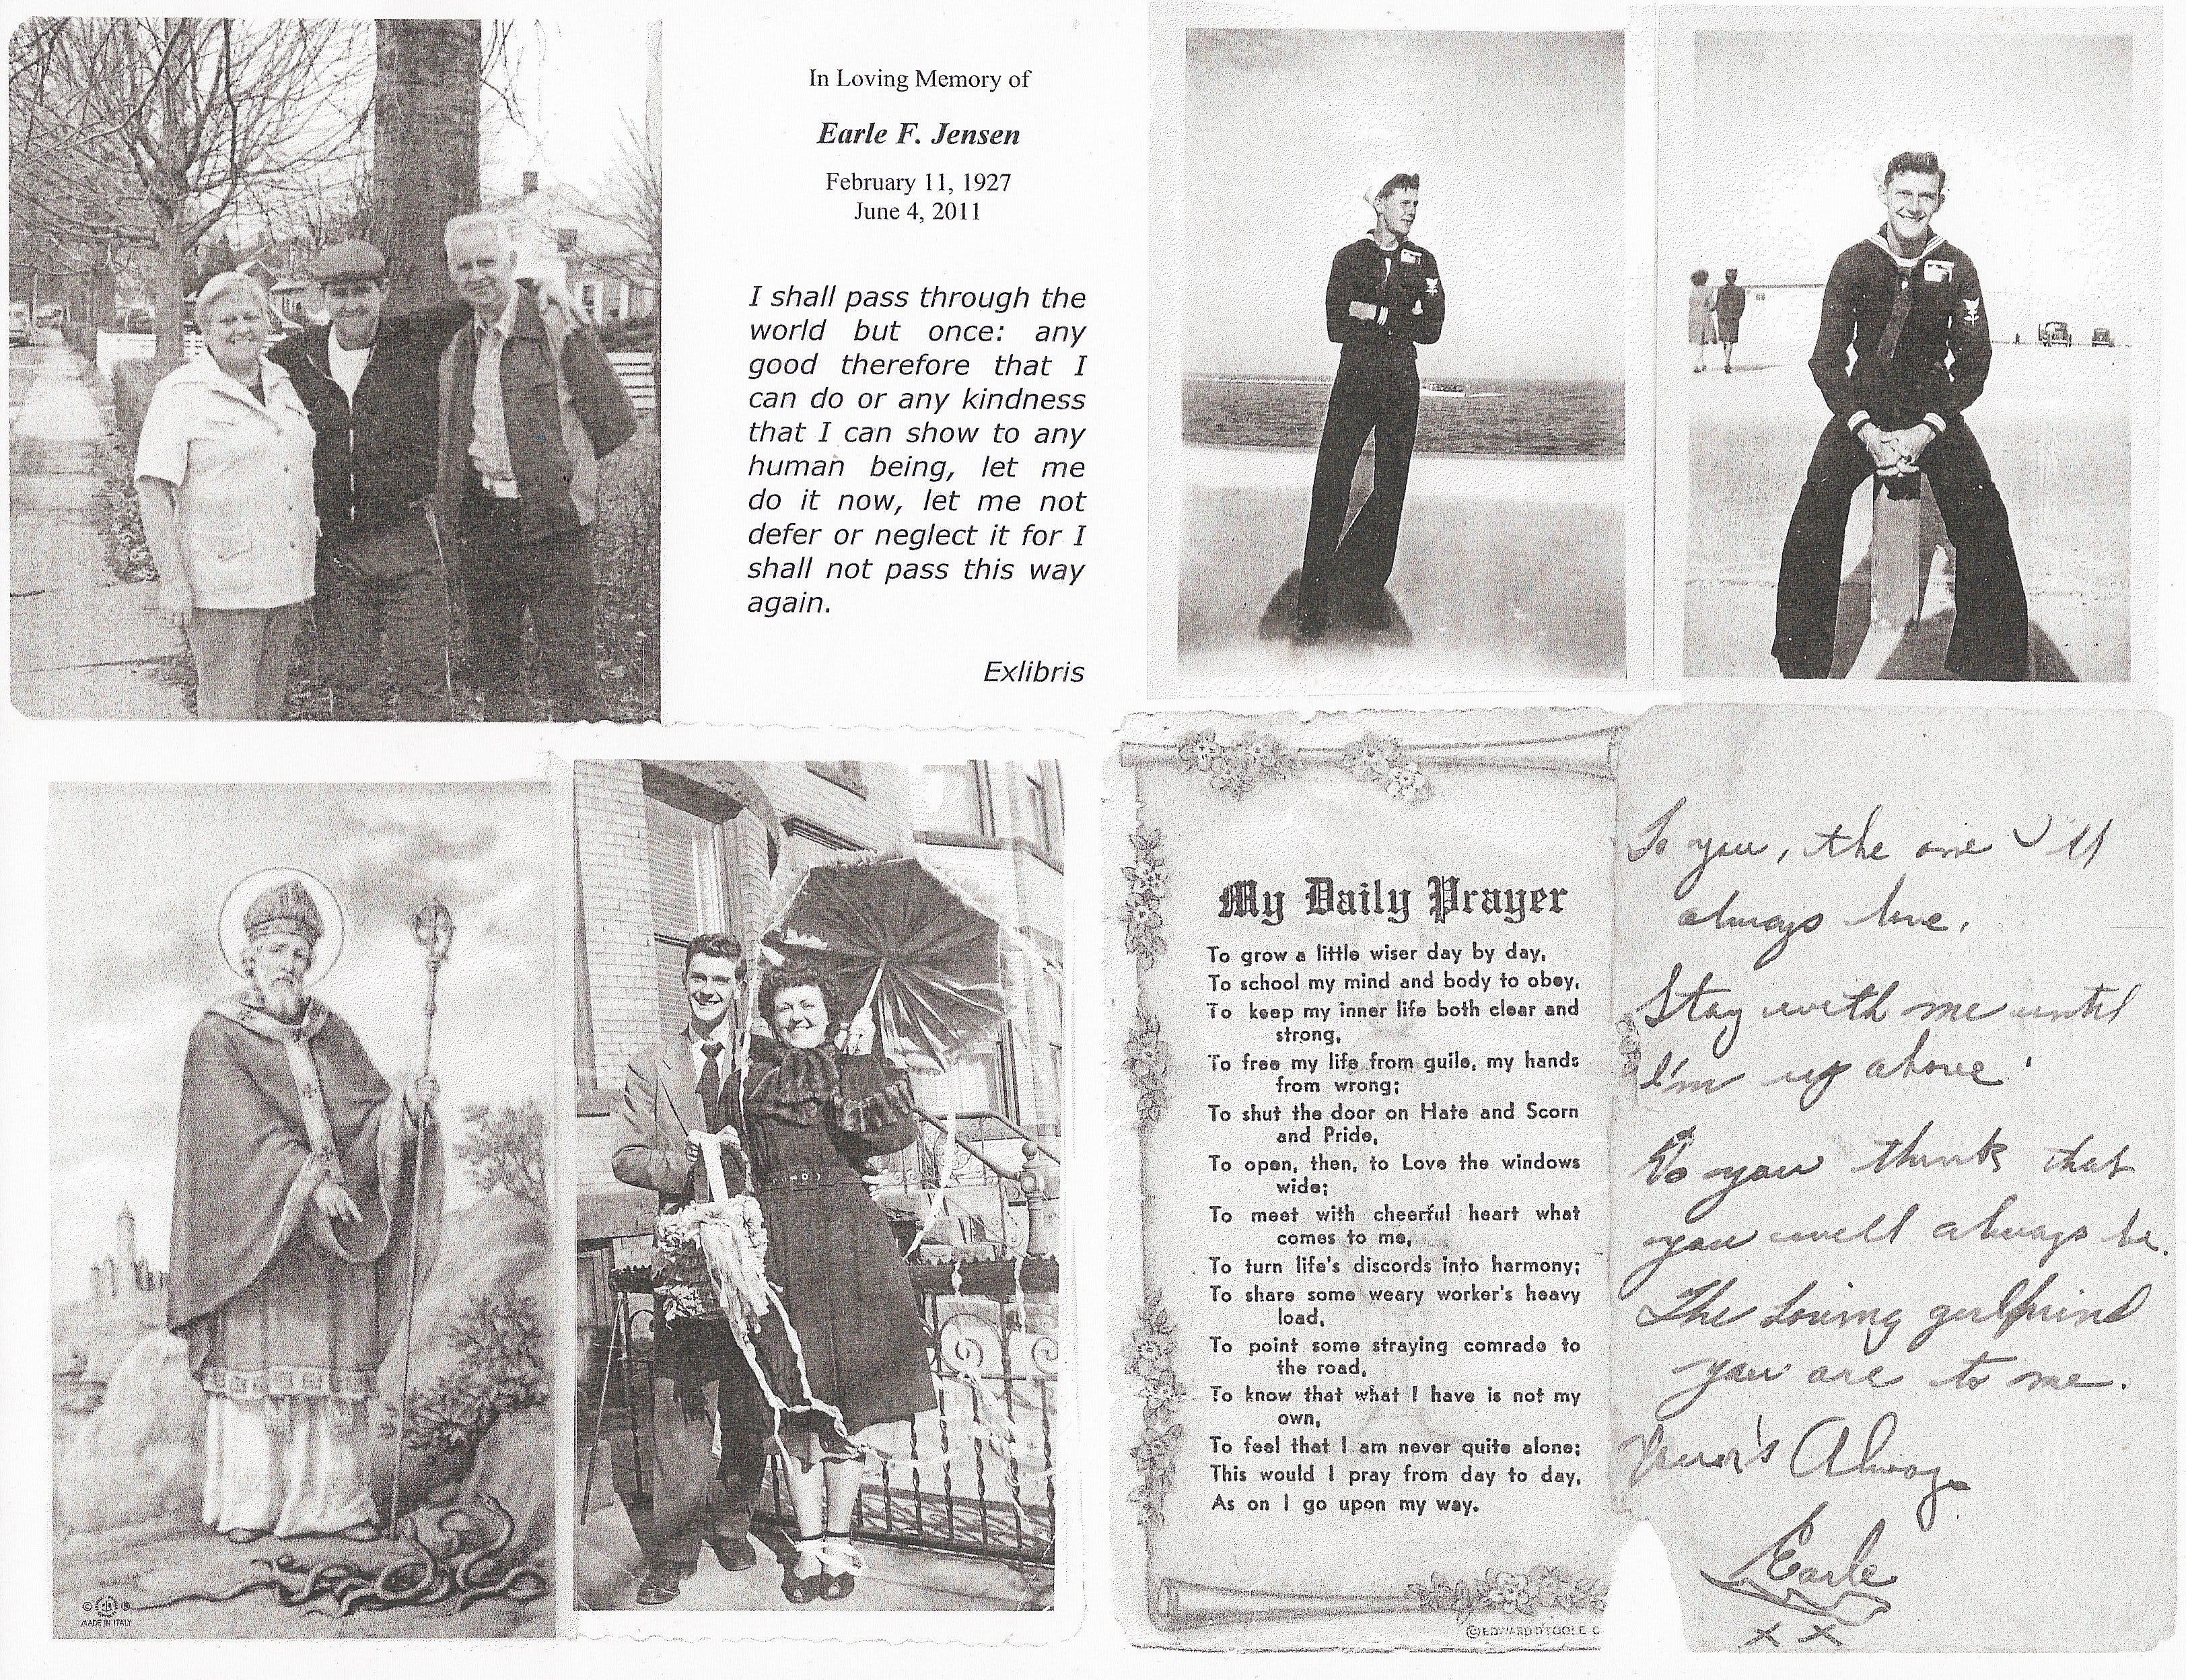 In Loving Memory of
Earle F. Jensen
February 11, 1927
June 4, 2011
I shall pass through the
world but once: any
good therefore that I
can do or any kindness
that I can show to any
human being, let me
do it now, let me not
defer or neglect it for I
shall not pass this way
again.
Exlibris
MADE IN ITALY
My Daily Prayer
To grow a little wiser day by day,
To school my mind and body to obey,
To keep my inner life both clear and
strong,
To free my life from guile, my hands
from wrong;
To shut the door on Hate and Scorn
and Pride,
To open, then, to Love the windows
wide;
To meet with cheerful heart what
comes to me,
To turn life's discords into harmony;
To share some weary worker's heavy
load,
To point some straying comrade to
the road,
To know that what I have is not my
own,
To feel that I am never quite alone;
This would I pray from day to day,
As on I go upon my way.
©EDWARD O'TOOLE C
To you, the one I'll
always love.
Stay with me until
I'm up above
To you think that
you will always be.
The loving girlfriend
you are to me.
Your's Always
Earle
x x